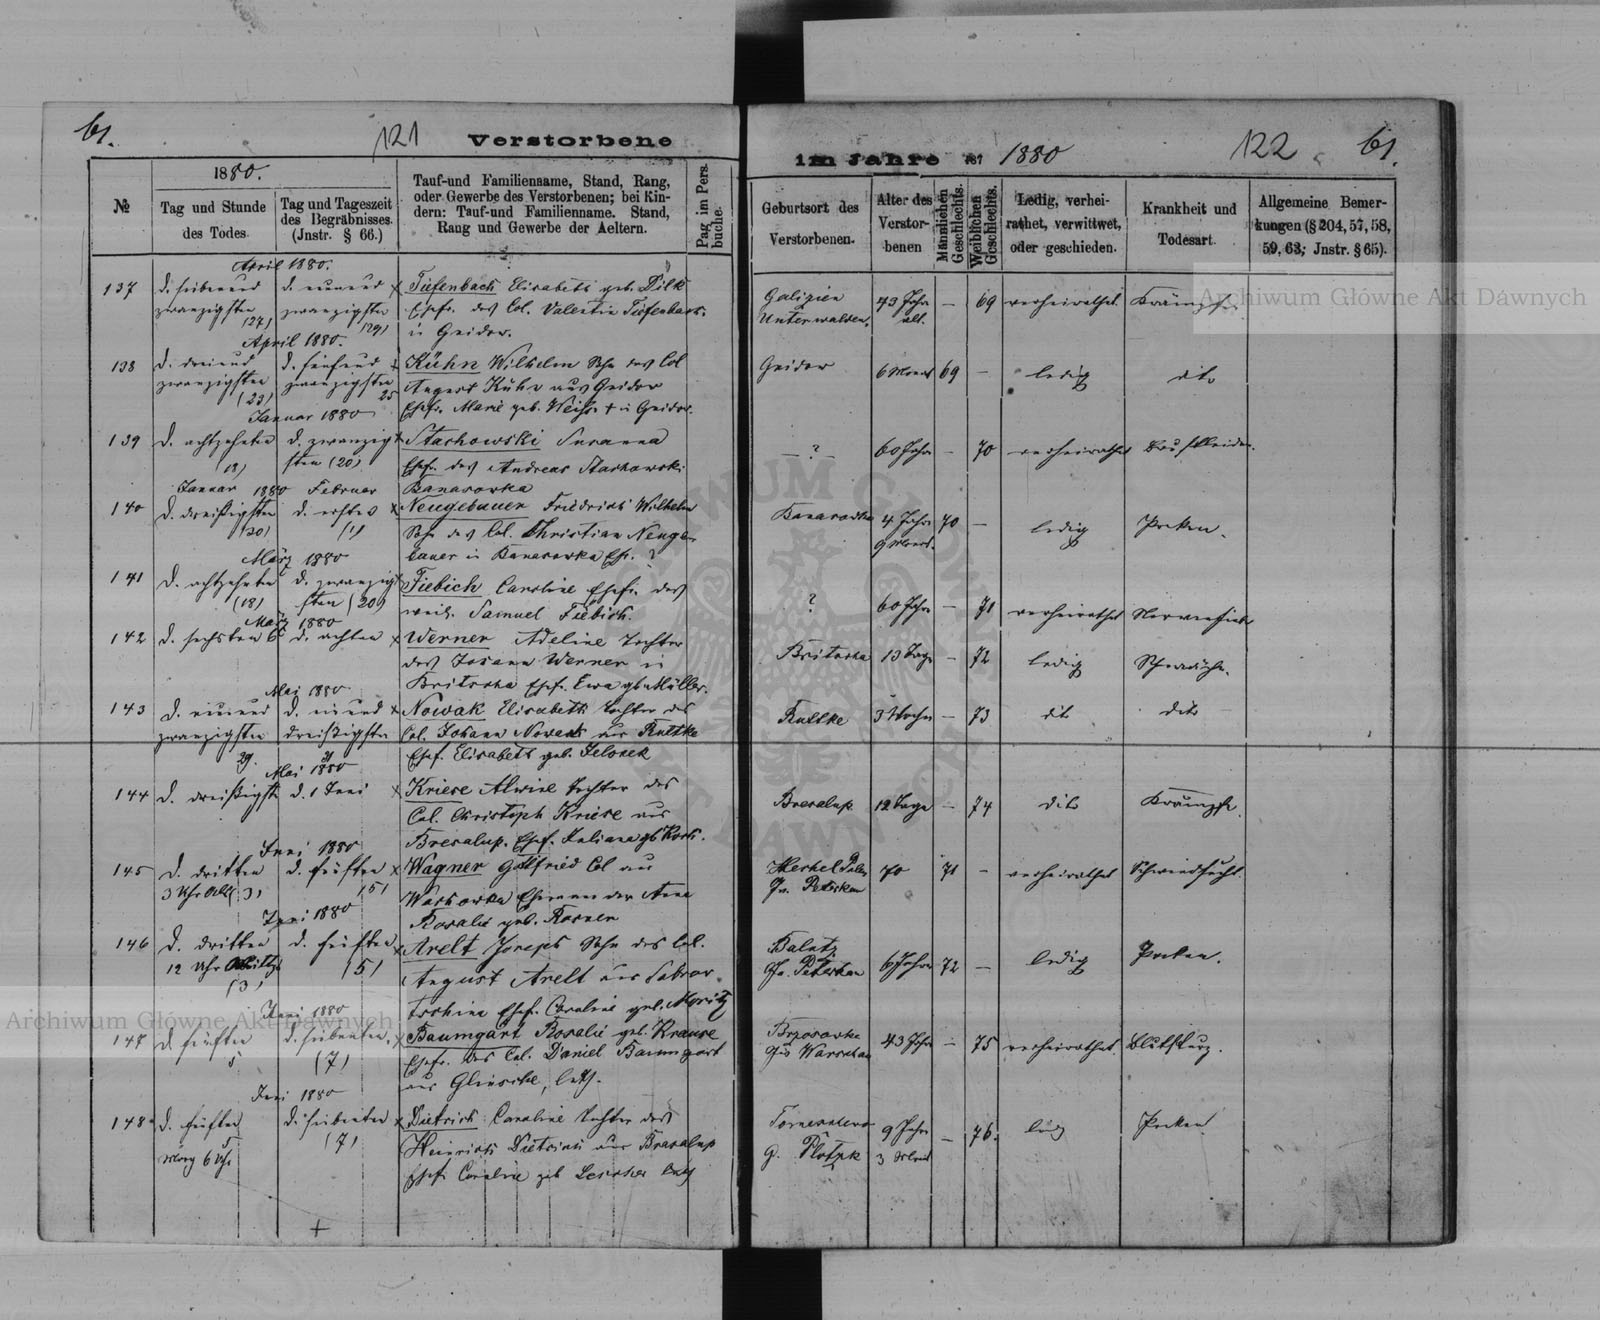 61.
121
Verstorbene
1880.
№
Tag und Stunde
des Todes.
Tag und Tageszeit
des Begräbnisses.
(Jnstr. § 66.)
Tauf-und Familienname, Stand, Rang,
oder Gewerbe des Verstorbenen; bei Kin-
dern: Tauf-und Familienname. Stand,
Rang und Gewerbe der Aeltern.
Pag im Pers.
buche.
April 1880.
137 d. siebenund d. neunund × Tiefenbach Elisabeth geb. Dilk
zwanzigsten zwanzigsten Ehefr. des Col. Valentin Tiefenbach
(27) (29) in Geidor.
April 1880.
138 d. dreiund d. fünfund × Kühn Wilhelm Sohn des Col
zwanzigsten zwanzigsten August Kühn aus Geidor
(23) 25 Ehefr. Marie geb. in Geidor.
Januar 1880
139 d. achtzehnten d. zwanzig × Stachowski Susanna
18) sten (20) Ehefr. des Andreas Stachowski
Banasowka
Januar 1880 Februar
140 d. dreißigsten d. ersten × Neugebauer Friedrich Wilhelm
30) (1) Sohn des Col. Christian Neuge-
bauer in Banasowka Ehf. ?
März 1880
141 d. achtzehnten d. zwanzig Fiebich Caroline Ehefr. des
(18) sten (20) weil. Samuel Fiebich.
März 1880
142 d. sechsten 6 d. achten × Werner Adeline Tochter
des Johann Werner in
Britocha Ehefr. Ewa gb. Müller.
Mai 1880
143 d. neunund d. einund × Nowak Elisabeth Tochter des
zwanzigsten dreißigsten Col. Johann Nowak aus Rultke
29. 31 Ehef. Elisabeth geb. Jelonek
Mai 1880
144 d. dreißigst d. 1 Juni × Kriese Alwine Tochter des
Col. Christoph Kriese aus
Bresalup. Ehef. Juliane gb
Juni 1880
145 d. dritten d. fünften × Wagner Gottfried Col aus
3 Uhr 3) (5) Ehemann der Anna
Rosalie geb. Rosner
Juni 1880
146 d. dritten d. fünften × Arelt Joseph Sohn des Col.
12 Uhr (5) August Arelt aus
(3)
Ehef. Caroline geb. Moritz
Juni 1880
147 d. fünften d. siebenten × Baumgart Rosalie geb. Krause
5 (7) Ehefr. des Col. Daniel Baumgart
aus
Juni 1880
148 d. fünften d. siebenten × Dietrich Caroline Tochter des
Morg 6 Uhr (7) Heinrich Dietrich aus Bresalup
Ehef Caroline geb
im Jahre 187 1880
122
61.
Geburtsort des
Verstorbenen.
Alter des
Verstor-
benen
Männlichen
Geschlechts.
Weiblichen
Geschlechts.
Ledig, verhei-
rathet, verwittwet,
oder geschieden.
Krankheit und
Todesart.
Allgemeine Bemer-
kungen (§ 204, 57, 58,
59, 63; Jnstr. § 65).
Galizien 43 Jahr — 69 verheirathet Krämpfe
Unterwalden. alt.
Geidor 6 Monat 69 — ledig dito
— ? — 60 Jahr — 70 verheirathet Brustleiden.
Banasowka 4 Jahr 70 — ledig Pocken.
9 Monat.
? 60 Jahr — 71 verheirathet Nervenfieber
Britocha 13 Tage — 72 ledig Schwäche.
Rultke 3 Wochen — 73 dito dito
Bresalup 12 Tage — 74 dito Krämpfe.
70 71 — verheirathet Schwindsucht.
Gv. Petrikau
Balutz 6 Jahr 72 — ledig Pocken.
Gv. Petrikau
43 Jahr — 75 verheirathet Blutsturz.
Gv Warschau
9 Jahr — 76. ledig Pocken
G. Plotzk 3 Monat
Archiwum Główne Akt Dawnych
Archiwum Główne Akt Dawnych